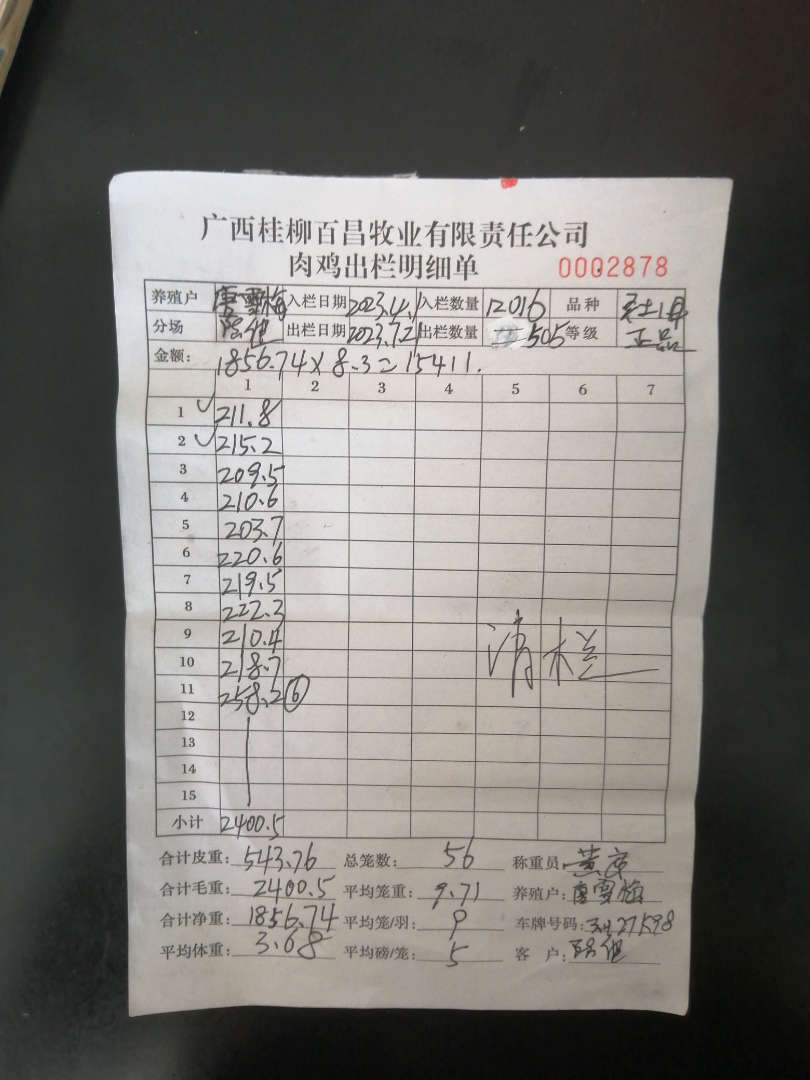 广西桂柳百昌牧业有限责任公司
肉鸡出栏明细单 0002878
养殖户 唐雪梅 入栏日期 2023.4.1 入栏数量 12016 品种
分场 出栏日期 2023.7.21 出栏数量 505 等级 正品
金额: 1856.74×8.3=15411.
1 2 3 4 5 6 7
1 211.8
2 215.2
3 209.5
4 210.6
5 203.7
6 220.6
7 219.5
8 222.3
9 210.4
10 218.7
11 258.2 6
12
13
14
15
清栏
小计 2400.5
合计皮重: 543.76 总笼数: 56 称重员: 黄
合计毛重: 2400.5 平均笼重: 9.71 养殖户: 唐雪梅
合计净重: 1856.74 平均笼/羽: 9 车牌号码:
平均体重: 3.68 平均磅/笼: 5 客 户: